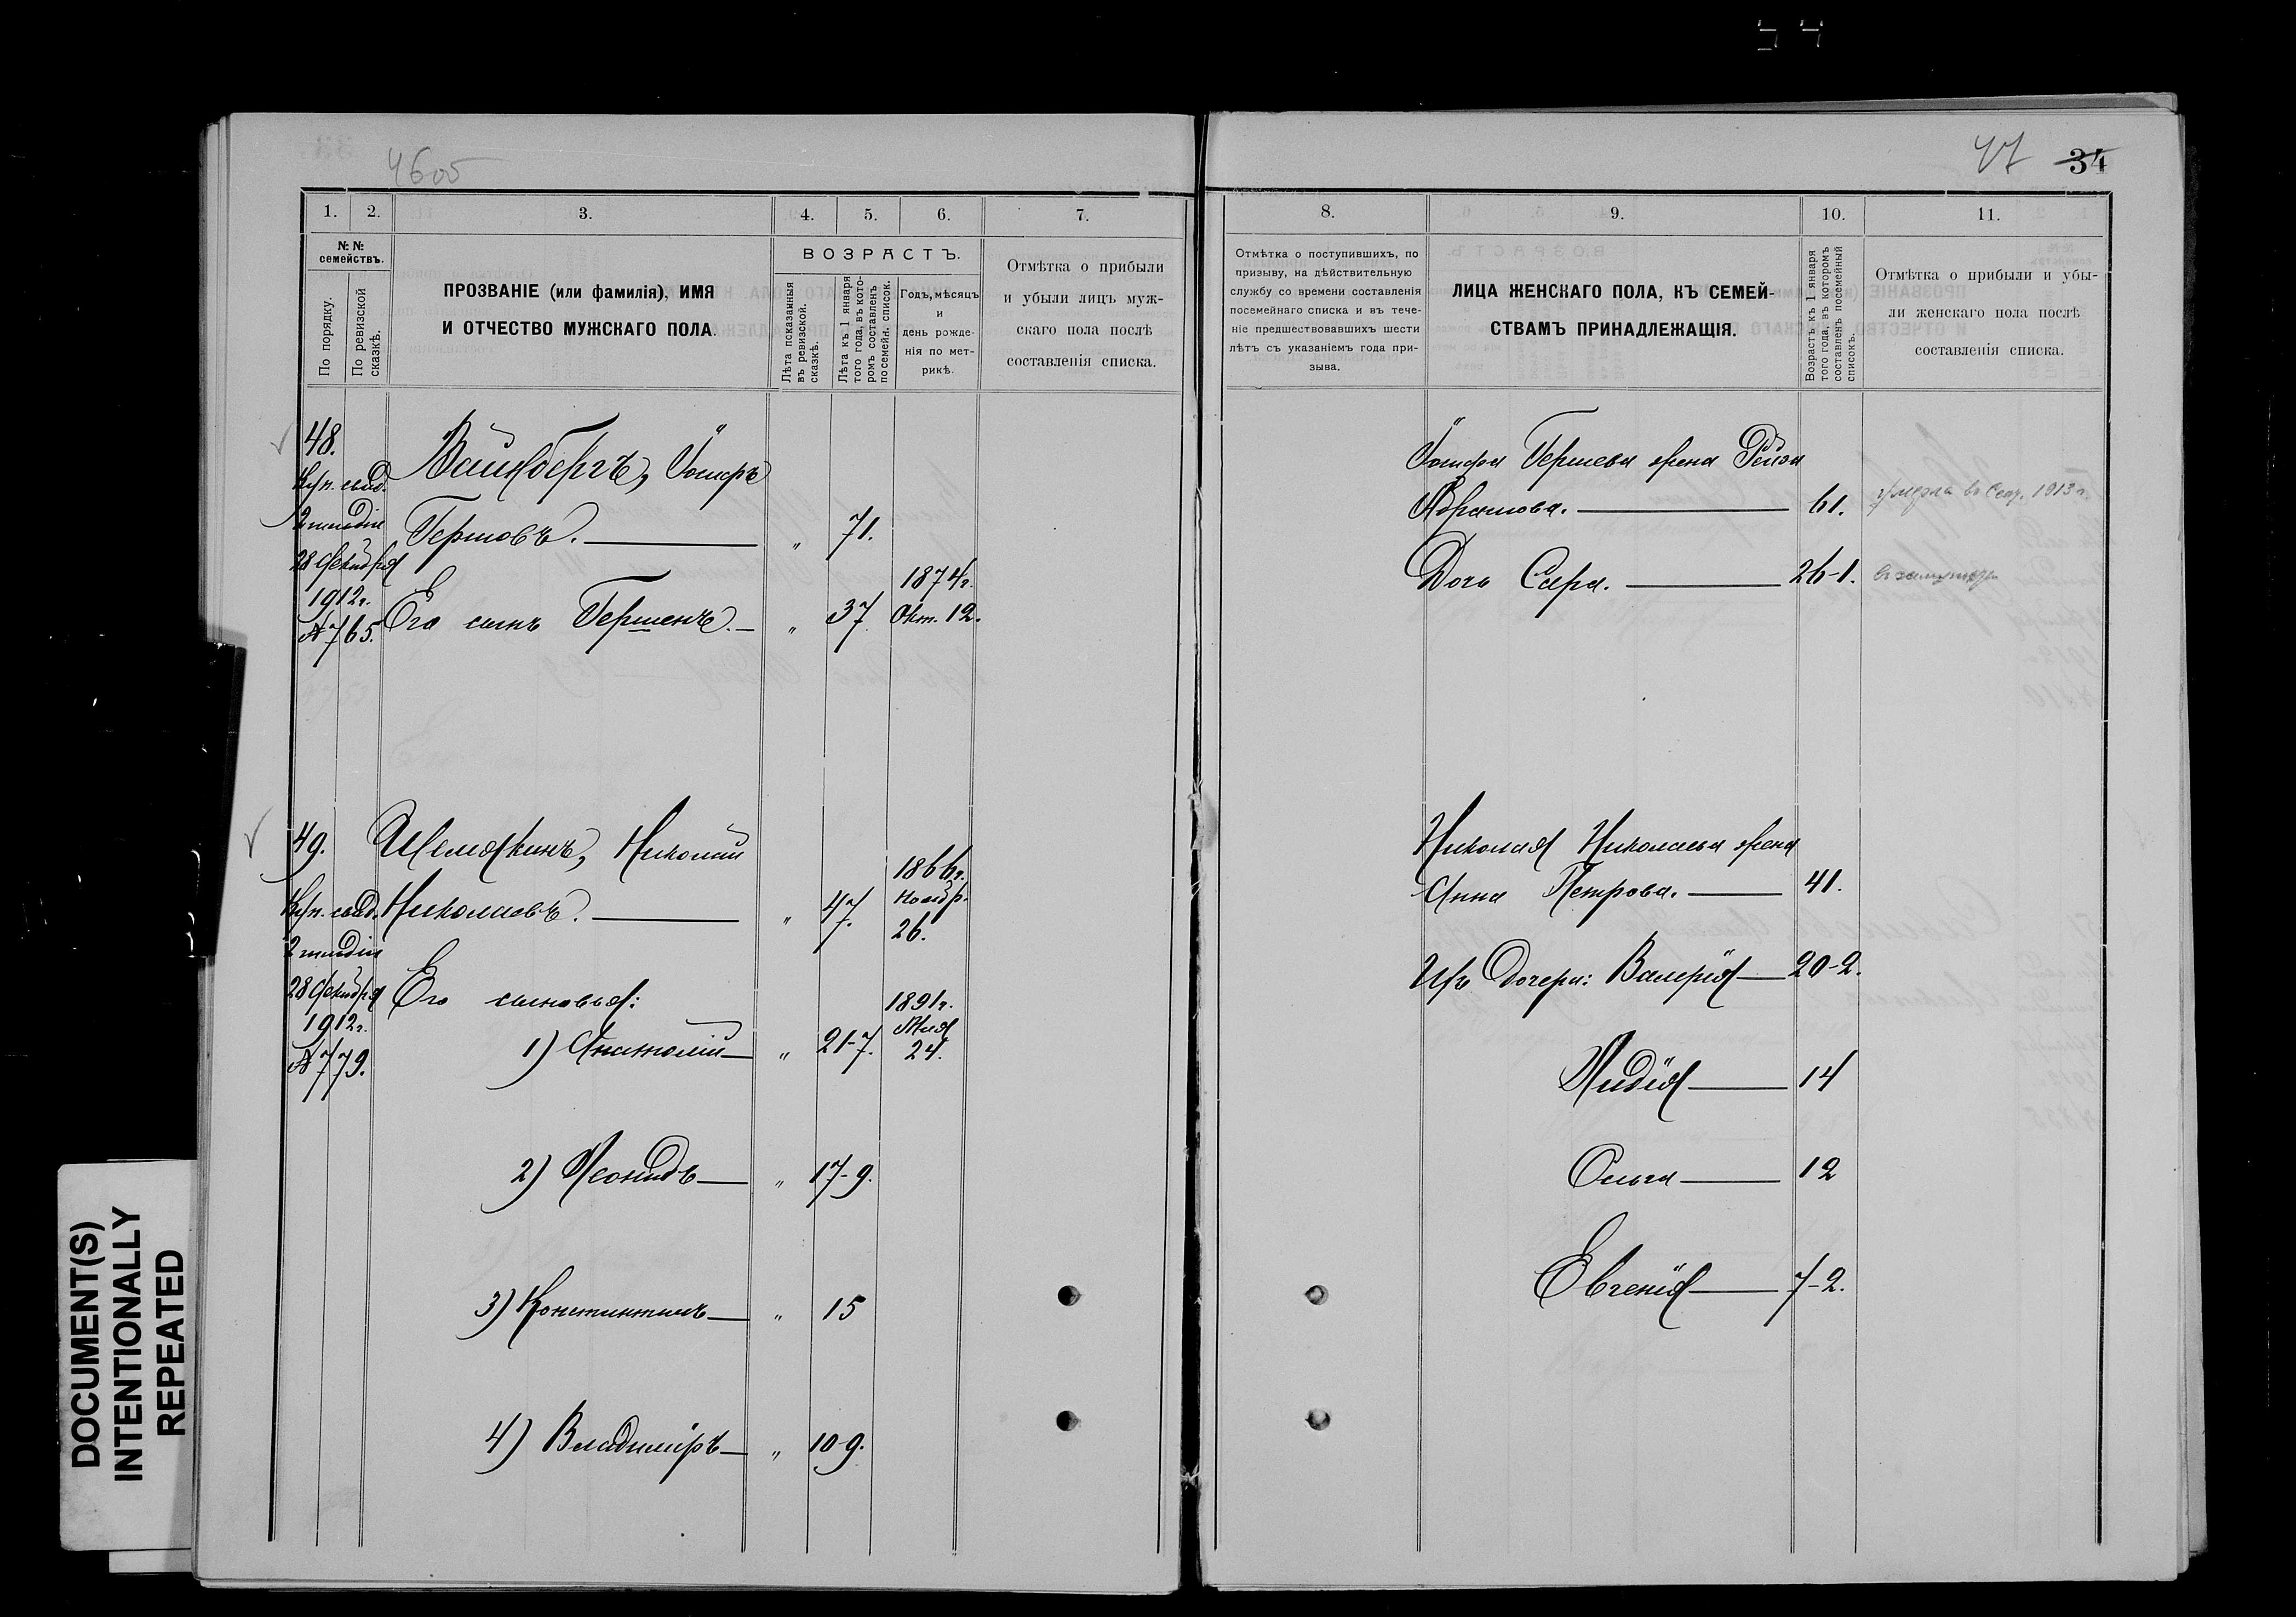 4605
47 34
1. 2. 3. 4. 5. 6. 7.
№ №
семействъ.
По порядку.
По ревизской
сказкѣ.
ПРОЗВАНІЕ (или фамилія), ИМЯ
И ОТЧЕСТВО МУЖСКАГО ПОЛА.
ВОЗРАСТЪ.
Лѣта показанныя
въ ревизской.
сказкѣ.
Лѣта къ 1 января
того года, въ кото-
ромъ составленъ
посемейн. список.
Годъ, мѣсяцъ
и
день рожде-
нія по мет-
рикѣ.
Отмѣтка о прибыли
и убыли лицъ муж-
скаго пола послѣ
составленія списка.
48.
Куп. свид.
2 гильдіи
28 Декабря
1912 г.
№ 765.
Вайнбергъ,
Гершовъ. " 71.
Его сынъ Гершенъ. " 37 1874 г.
Окт. 12.
49.
Куп. свид.
2 гильдіи
28 Декабря
1912 г.
№ 779.
Шемякинъ, Николай
Николаевъ. " 47. 1866 г.
Ноябр.
26.
Его сыновья:
1) Анатолій " 21-7. 1891 г.
Мая
24.
2) Леонидъ " 17-9.
3) Константинъ " 15
4) Владиміръ " 10-9.
8. 9. 10. 11.
Отмѣтка о поступившихъ, по
призыву, на дѣйствительную
службу со времени составленія
посемейнаго списка и въ тече-
ніе предшествовавшихъ шести
лѣтъ съ указаніемъ года при-
зыва.
ЛИЦА ЖЕНСКАГО ПОЛА, КЪ СЕМЕЙ-
СТВАМЪ ПРИНАДЛЕЖАЩІЯ.
Возрастъ къ 1 января
того года, въ которомъ
составленъ посемейный
списокъ.
Отмѣтка о прибыли и убы-
ли женскаго пола послѣ
составленія списка.
Гершева жена Рейза
Абрамова. 61. умерла въ Сент. 1913 г.
Дочь Сара. 26-1. въ замужествѣ
Николая Николаева жена
Анна Петрова. 41.
Ихъ дочери: Валерія 20-2.
Лидія 14
Ольга 12
Евгенія 7-2.
DOCUMENT(S)
INTENTIONALLY
REPEATED